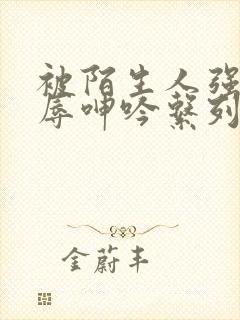 被陌生人强
辱呻吟繫列
金蔚丰